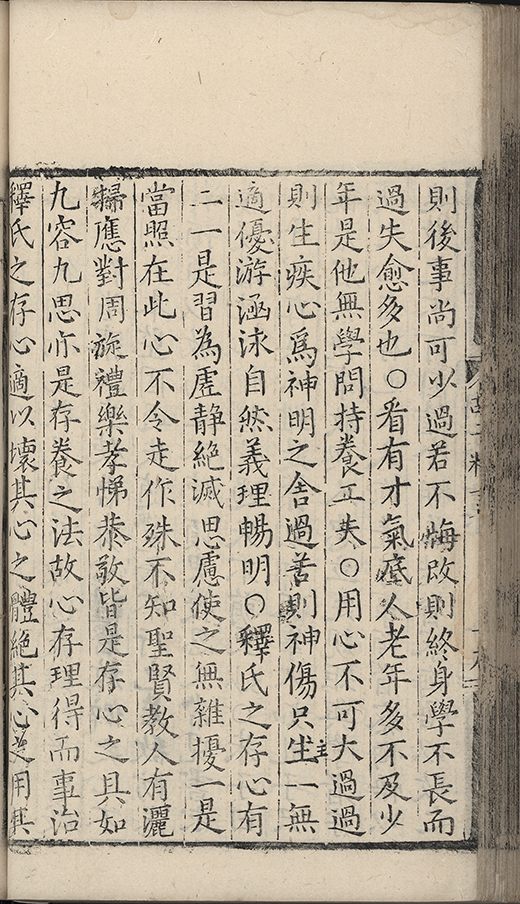 則後事尚可少過若不悔改則終身學不長而
過失愈多也〇看有才氣底人老年多不及少
年是他無學問持養工夫〇用心不可大過過
則生疾心爲神明之舍過苦則神傷只主一無
適優游涵泳自然義理暢明〇釋氏之存心有
二一是習為虛静絶滅思慮使之無雜擾一是
當照在此心不令走作殊不知聖賢教人有灑
掃應對周旋禮樂孝悌恭敬皆是存心之具如
九容九思亦是存養之法故心存理得而事治
釋氏之存心適以壞其心之體絶其心之用其